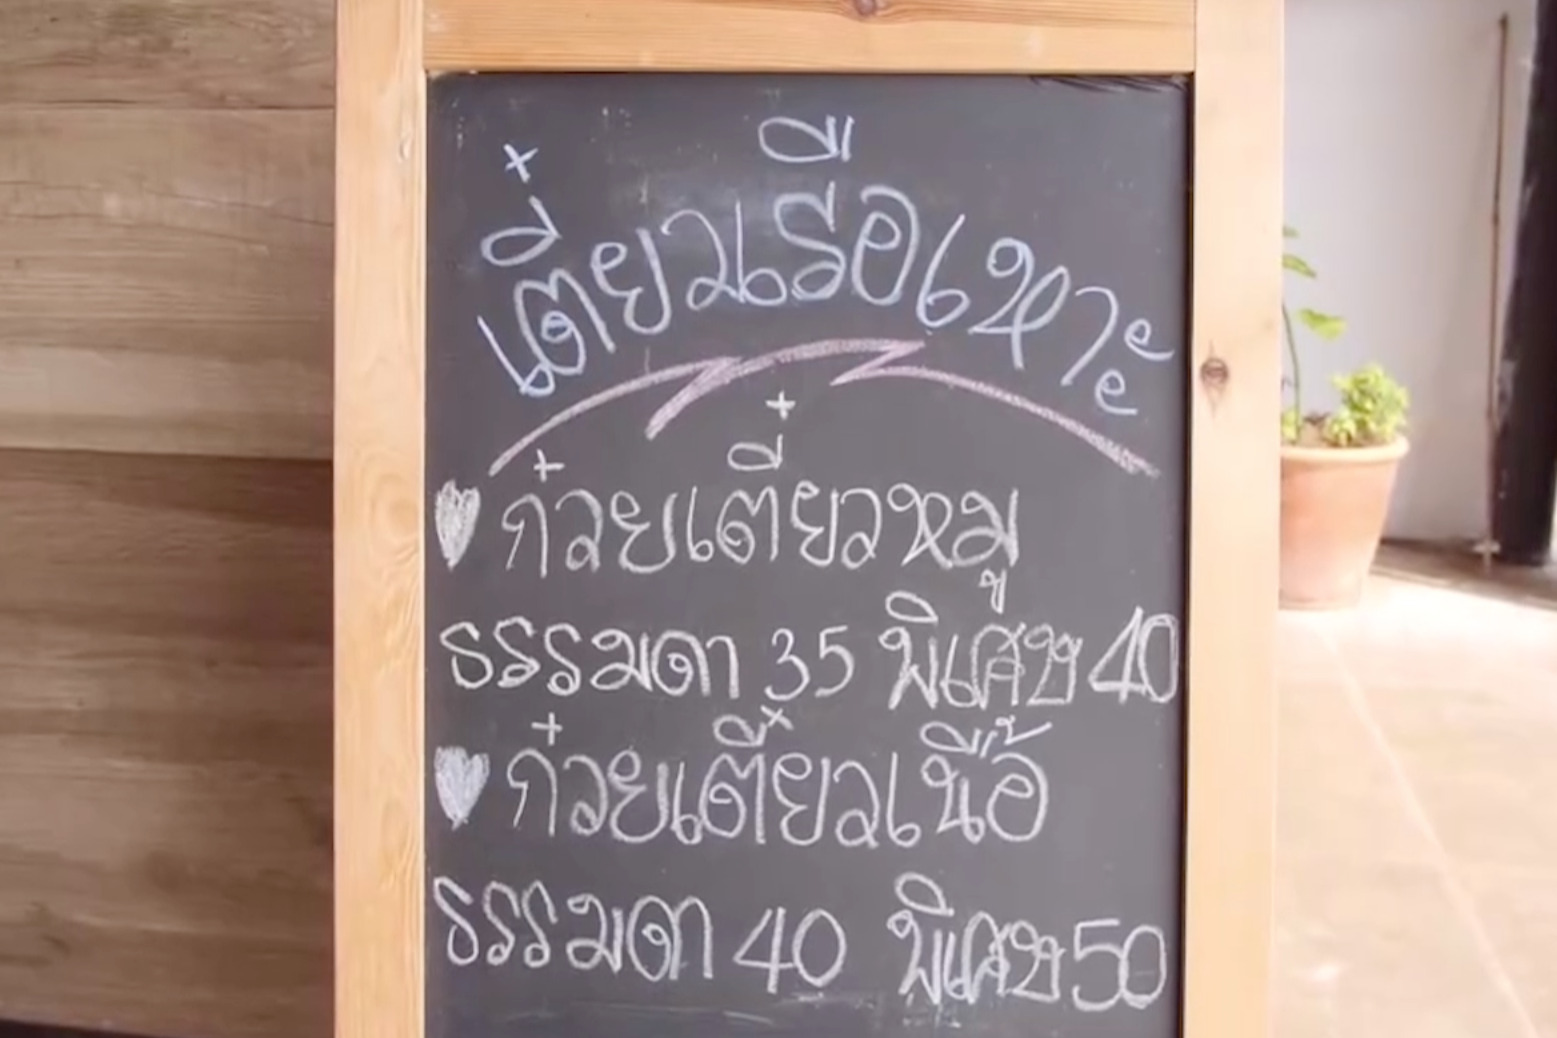 เตี๋ยวเรือเหาะ
ก๋วยเตี๋ยวหมู
ธรรมดา 35 พิเศษ 40
ก๋วยเตี๋ยวเนื้อ
ธรรมดา 40 พิเศษ 50